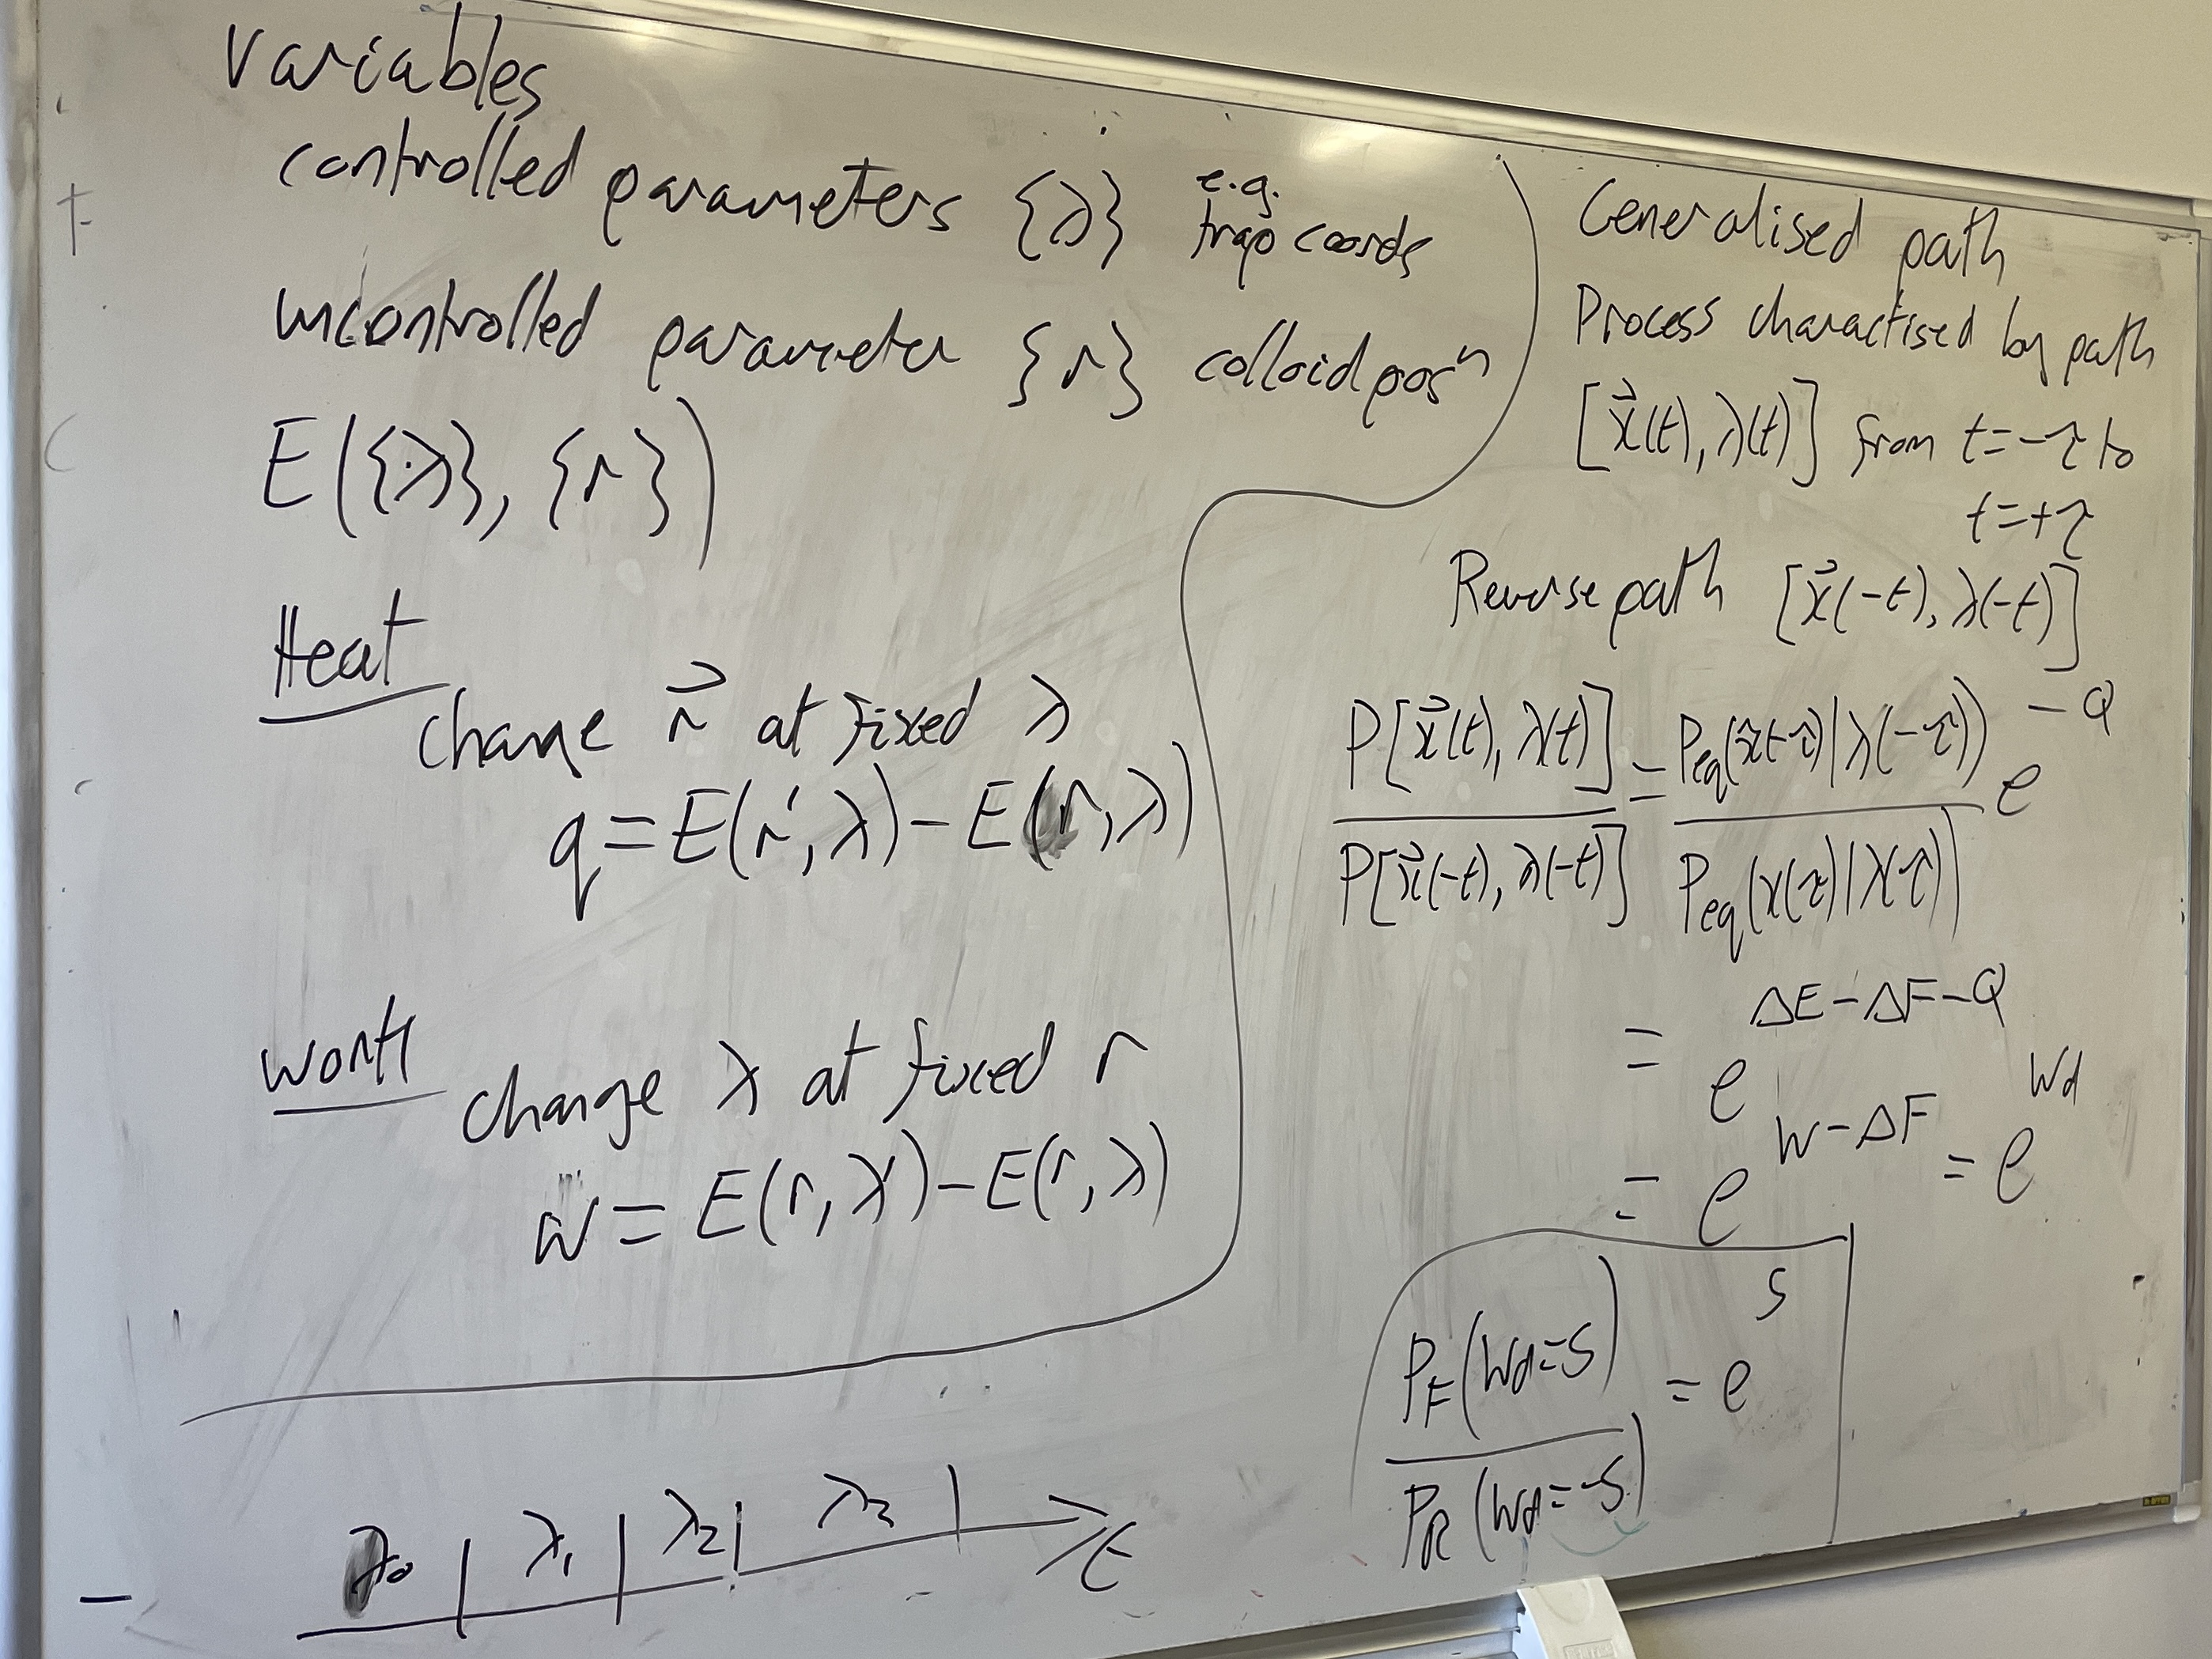 Variables
controlled parameters {λ} e.g. trap coords
uncontrolled parameter {r} colloid posⁿ
E({λ}, {r})
Heat
change r⃗ at fixed λ
q = E(r', λ) - E(r, λ)
Work
change λ at fixed r
w = E(r, λ') - E(r, λ)
λ₀ | λ₁ | λ₂ | λ₃ | → t
Generalised path
Process charactised by path
[x⃗(t), λ(t)] from t = -τ to
t = +τ
Reverse path [x⃗(-t), λ(-t)]
P[x⃗(t), λ(t)] / P[x⃗(-t), λ(-t)] = Peq(x⃗(-τ)|λ(-τ)) / Peq(x(τ)|λ(τ)) e^(-Q)
= e^(ΔE - ΔF - Q)
= e^(W - ΔF) = e^(Wd)
P_F(Wd = S) / P_R(Wd = -S) = e^S